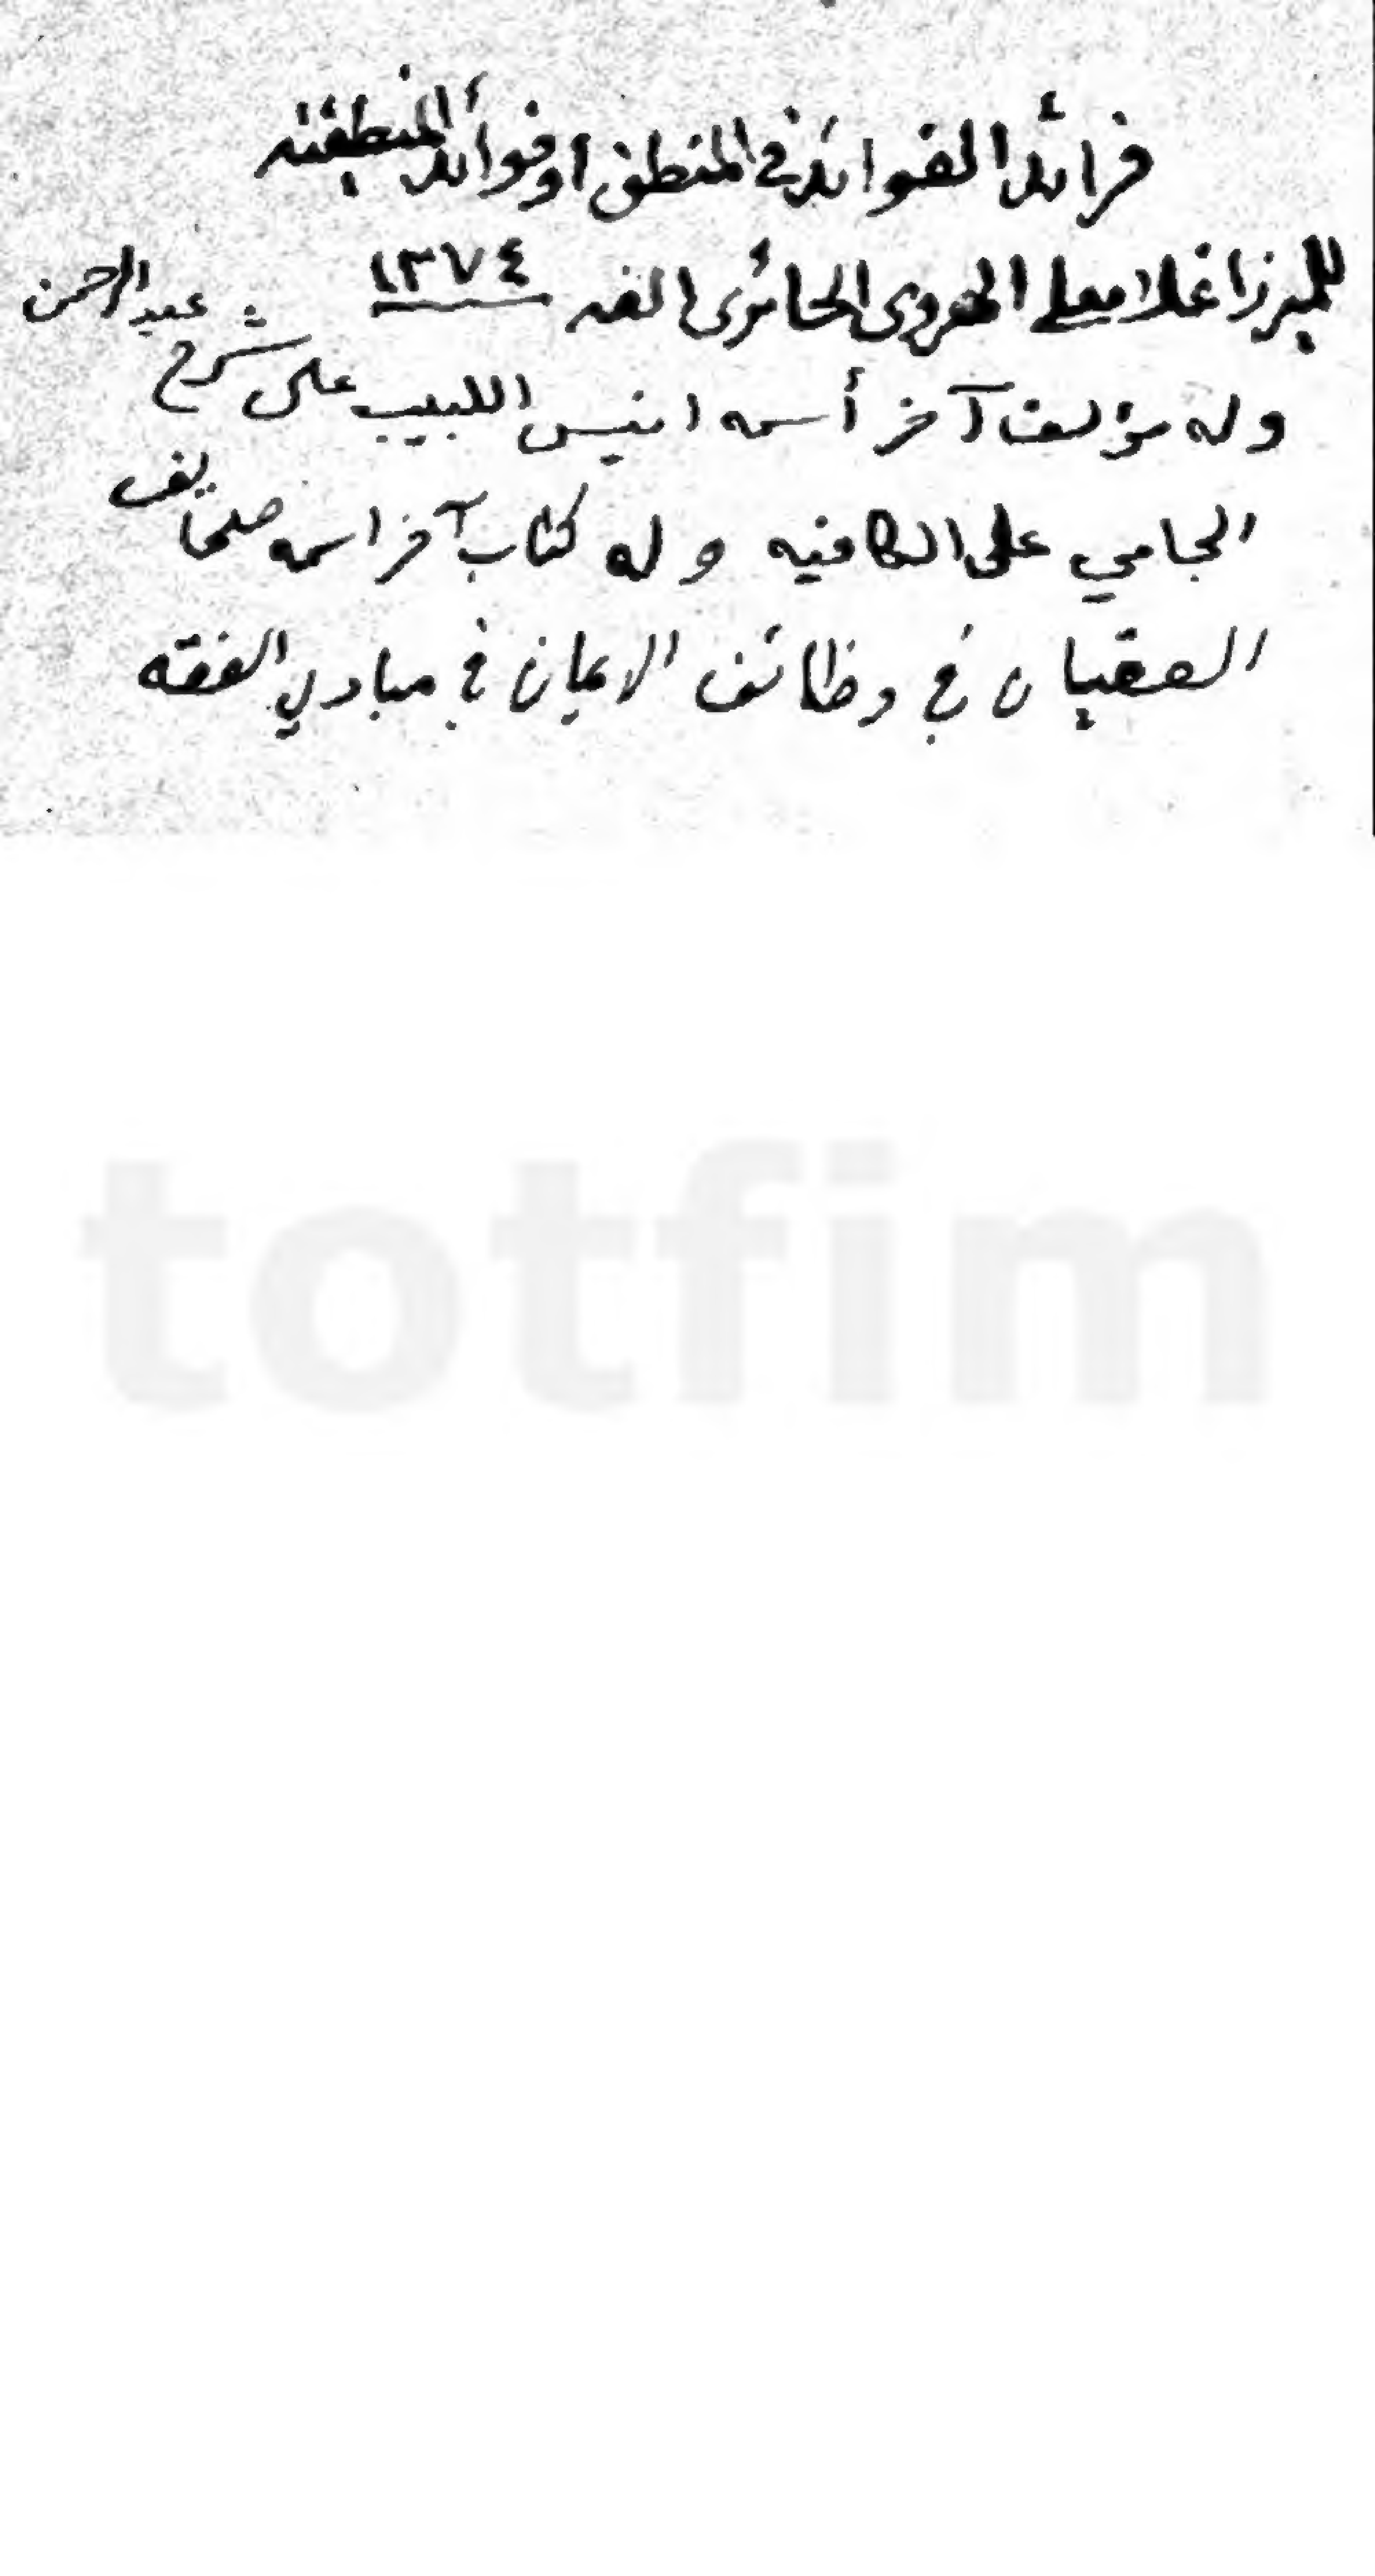 فرائد الفوائد في المنطق او فوائد المنطقيه
للميرزا غلامعلي الهروى الحائرى الفه ١٣٧٤
وله مؤلف آخر أسمه انيس اللبيب على شرح عبد الرحمن
الجامي على الكافيه وله كتاب آخر اسمه صحايف
العقيان في وظائف الايمان في مبادي الفقه
totfim